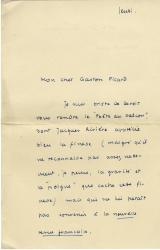 lundi.
Mon cher Gaston Picard
je suis triste de devoir
vous rendre le Poète au balcon
dont Jacques Rivière apprécie
bien la finesse (malgré qu'il
ne reconnaisse pas assez nette-
ment, je pense, la gravité et
la poigne que cache cette fi-
nesse) mais qui ne lui paraît
pas convenir à la nouvelle
revue française.